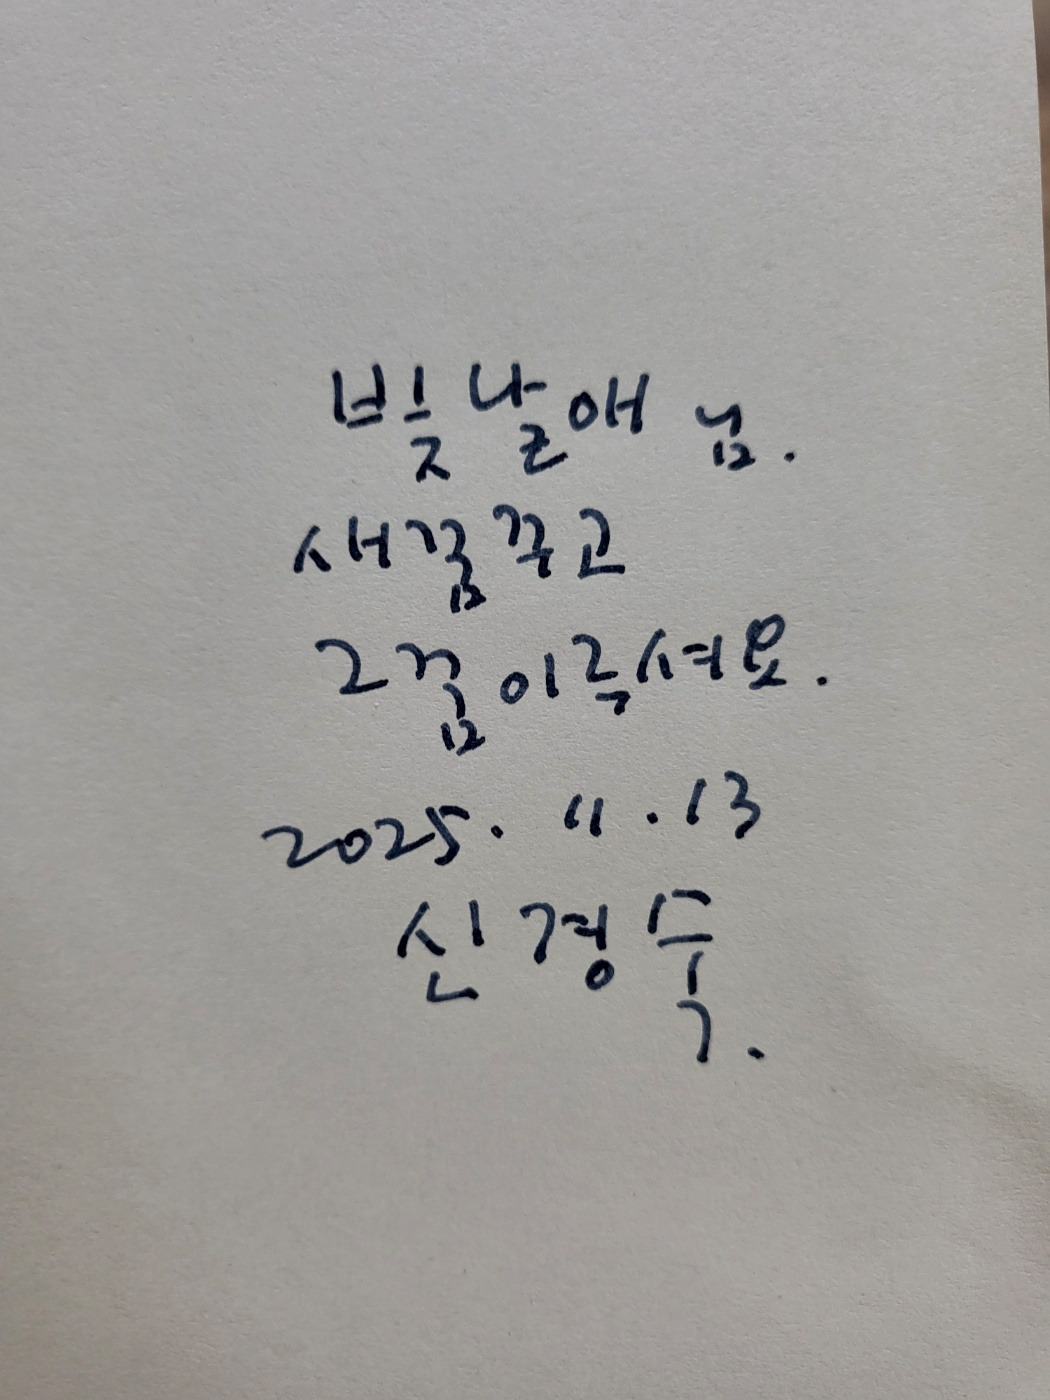 빛날애 님.
새꿈 꾸고
그 꿈 이루셔요.
2025. 11. 13
신경숙.